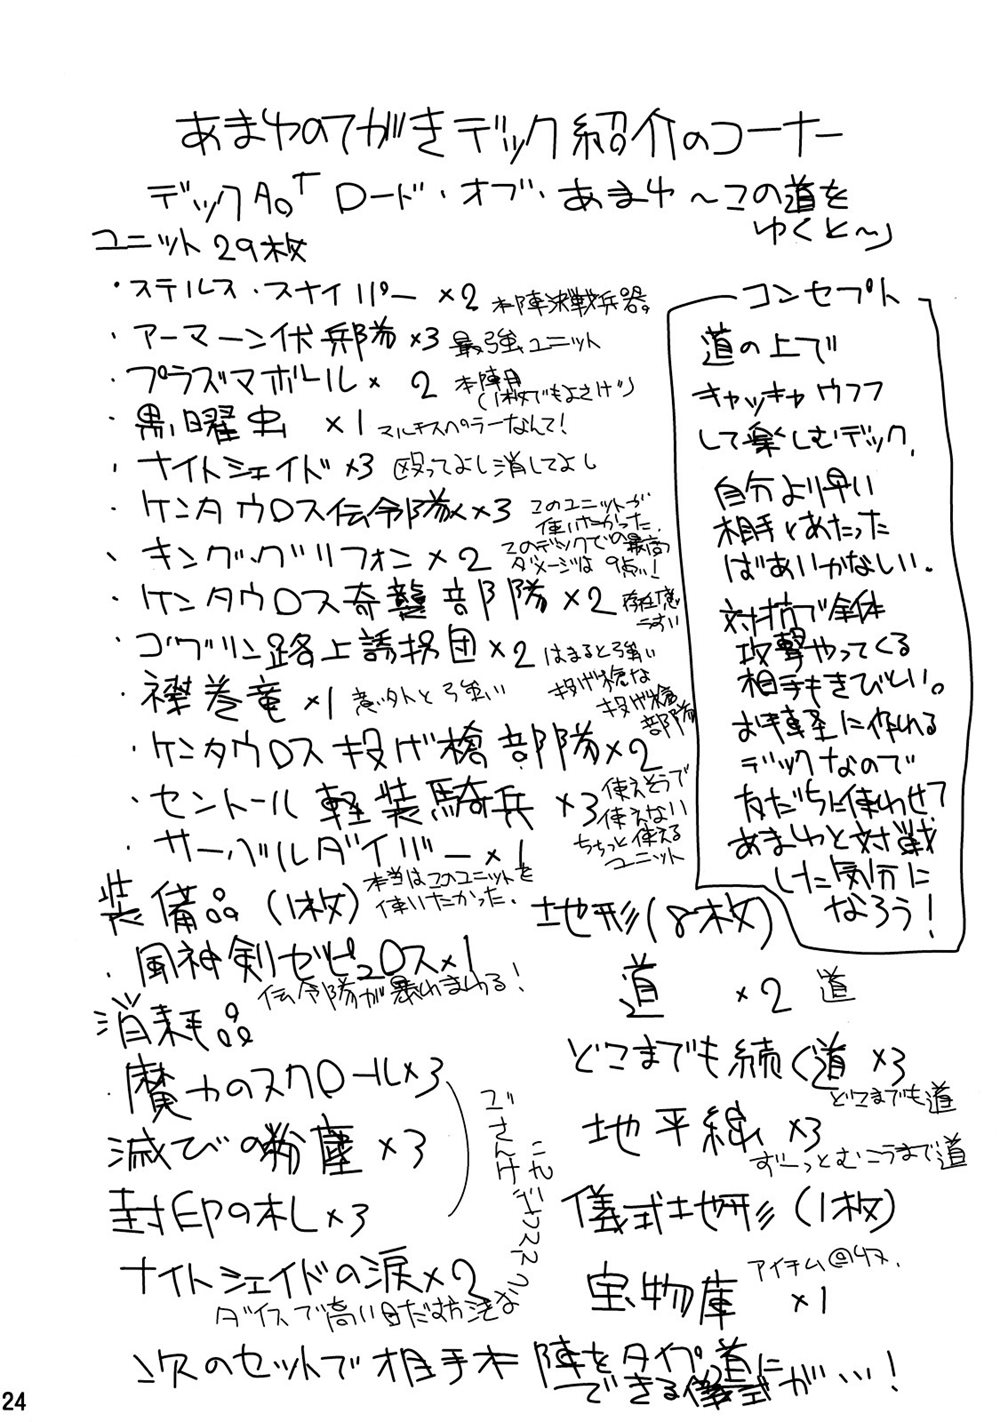 あまわのてがきデック紹介のコーナー
デックAo「ロード・オブ・あまわ～この道を
ゆくと～」
ユニット29枚
・ステルス・スナイパー×2 本陣決戦兵器。
・アーマーン伏兵部隊×3 最強ユニット
・プラズマボール×2 本陣用
(1枚でもよさげ)
・黒曜虫 ×1 マルチスペラーなんて!
・ナイトシェイド×3 殴ってよし消してよし
・ケンタウロス伝令隊×3 このユニットが
使いたかった。
・キング・グリフォン×2 このデックでの最高
ダメージは9点!
・ケンタウロス奇襲部隊×2 存在感
うすい
・ゴブリン路上誘拐団×2 はまると強い
・襟巻竜×1 意外と強い
投げ槍な
投げ槍
部隊
・ケンタウロス投げ槍部隊×2
・セントール軽装騎兵×3 使えそうで
使えない
ちょっと使える
ユニット
・サーベルダイバー×1
本当はこのユニットを
使いたかった。
装備品(1枚)
・風神剣ゼピュロス×1
伝令隊が暴れまわる!
消耗品
・魔力のスクロール×3
滅びの粉塵×3
封印の札×3
ナイトシェイドの涙×2
ダイスで高い目だす方法な
次のセットで相手本陣をタイプ道に
できる儀式が…!
コンセプト
道の上で
キャッキャウフフ
して楽しむデック。
自分より早い
相手とあたった
ばあいかなしい。
対抗で全体
攻撃やってくる
相手もきびしい。
お手軽に作れる
デックなので
友だちに使わせて
あまわと対戦
した気分に
なろう!
地形(8枚)
道 ×2 道
どこまでも続く道×3
どこまでも道
地平線×3
ずーっとむこうまで道
儀式地形(1枚)
宝物庫 ×1
24